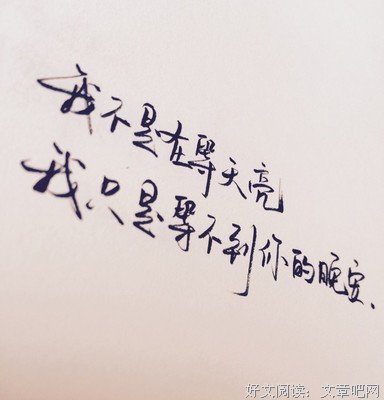 我不是在等天亮
我只是等不到你的晚安.
好文阅读：文章吧网